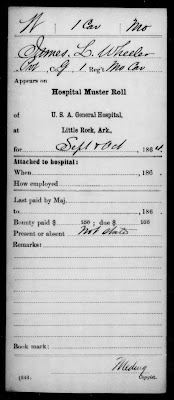 W | 1 Cav | Mo
James L. Wheeler
Pvt, Co. G, 1 Reg't Mo Cav
Appears on
Hospital Muster Roll
of U. S. A. General Hospital,
at Little Rock, Ark.,
for Sept & Oct, 1864.
Attached to hospital:
When , 186 .
How employed
Last paid by Maj.
to , 186 .
Bounty paid $ 100 ; due $ 100
Present or absent Not stated
Remarks:
Book mark:
Meding
(343) Copyist.